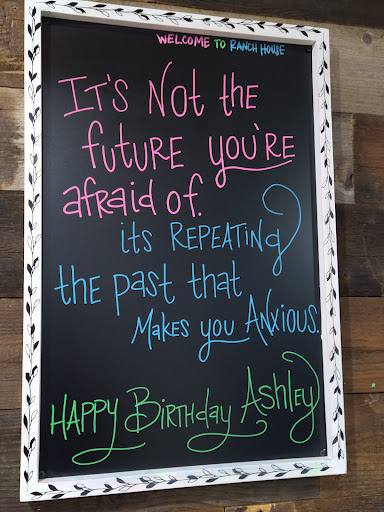 WELCOME TO RANCH HOUSE
IT'S NOT THE
FUTURE YOU'RE
AFRAID OF.
ITS REPEATING
THE PAST THAT
MAKES YOU ANXIOUS.
HAPPY BIRTHDAY ASHLEY